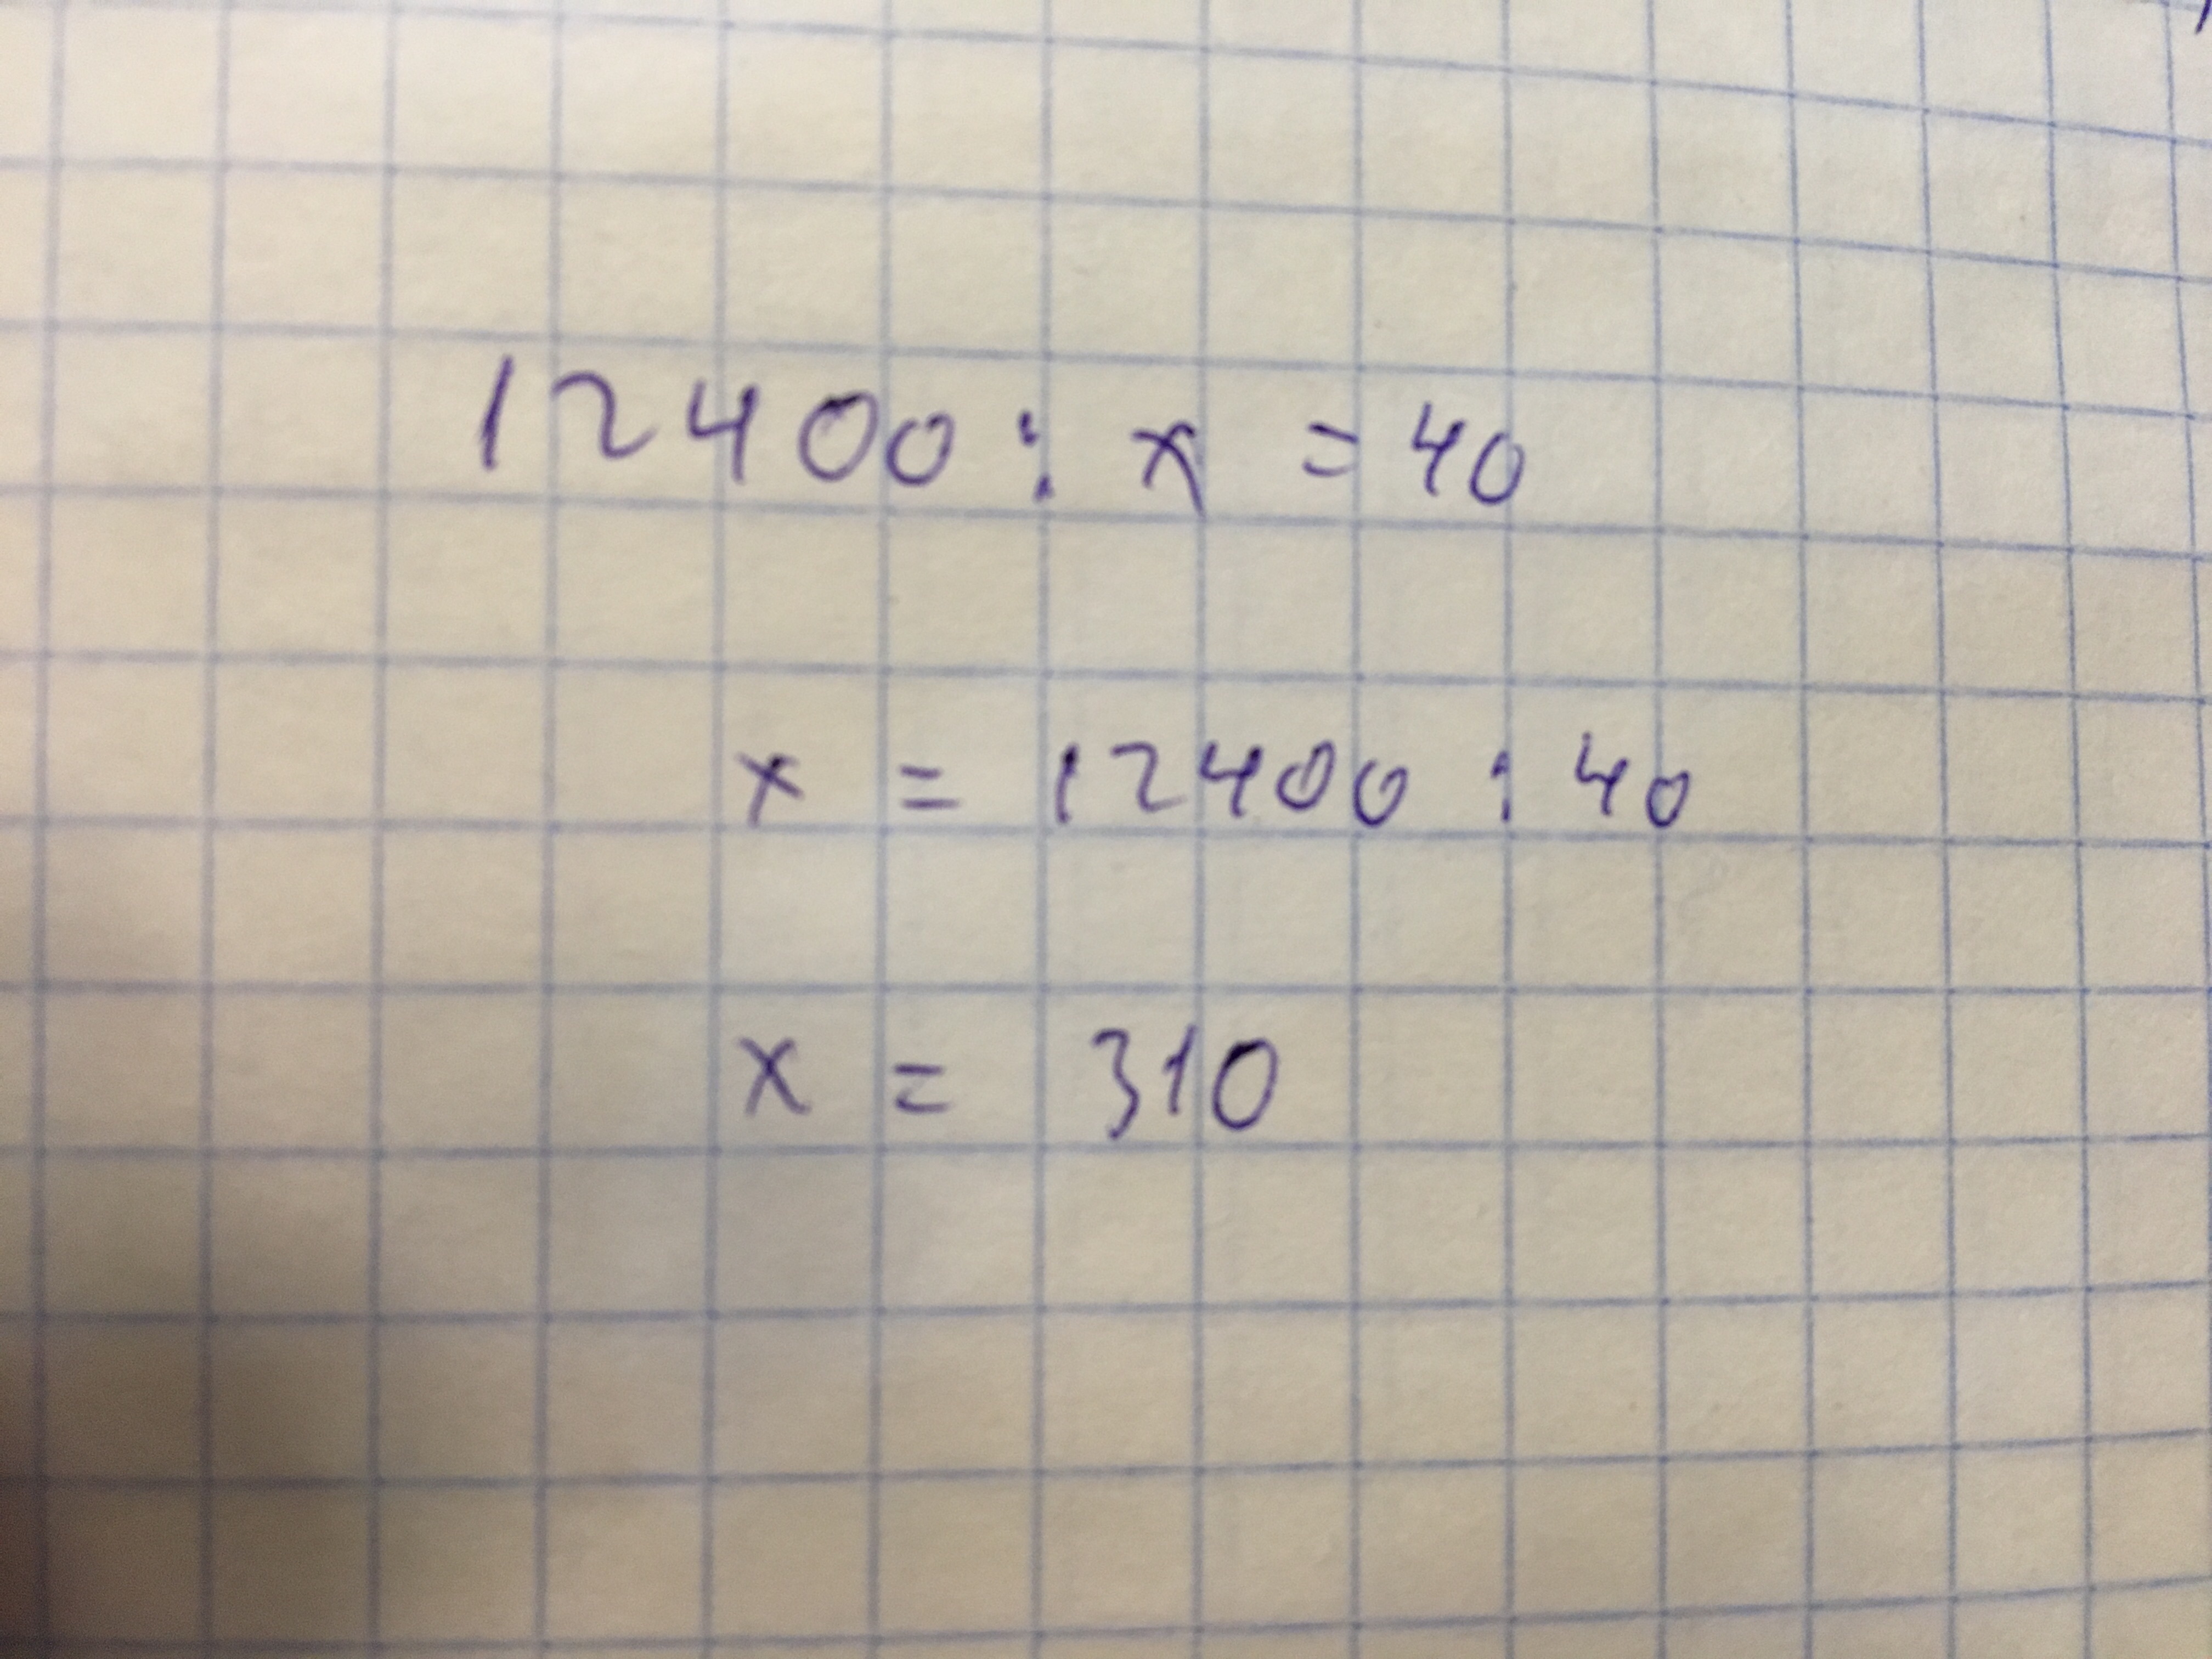 12400 : x = 40
x = 12400 : 40
x = 310